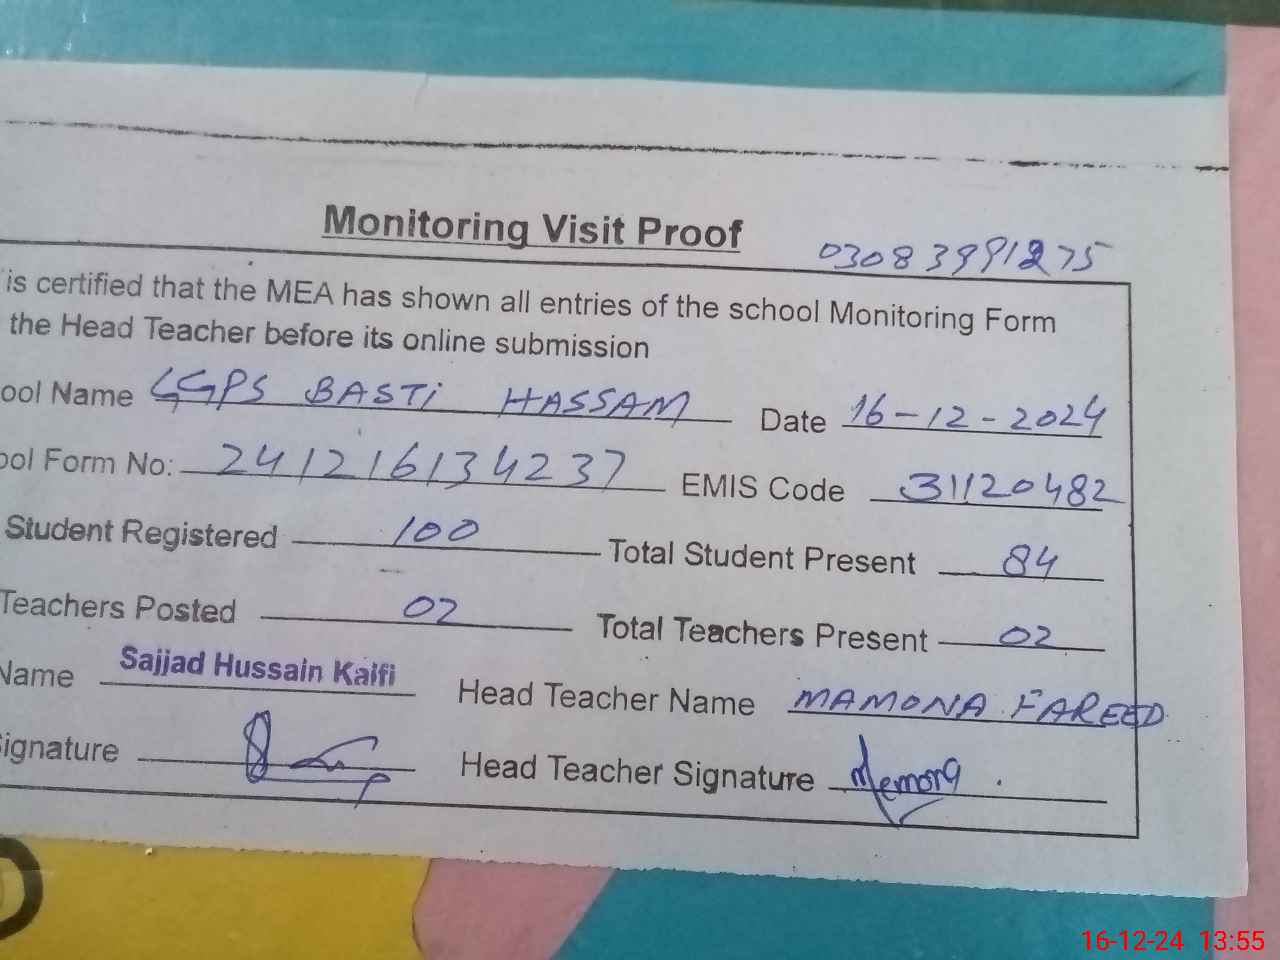 Monitoring Visit Proof
03083991275
is certified that the MEA has shown all entries of the school Monitoring Form
the Head Teacher before its online submission
ool Name GGPS BASTi HASSAM Date 16-12-2024
ool Form No: 241216134237 EMIS Code 31120482
Student Registered 100 Total Student Present 84
Teachers Posted 02 Total Teachers Present 02
Name Sajjad Hussain Kaifi Head Teacher Name MAMONA FAREED
ignature Head Teacher Signature Memona
16-12-24 13:55